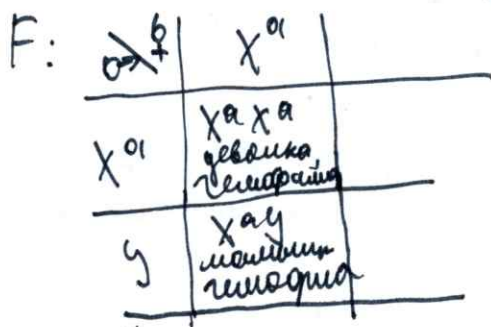 F: ♂ ♀ X^a
X^a X^a X^a
девочка
гемофилия
у X^a у
мальчик
гемофилия